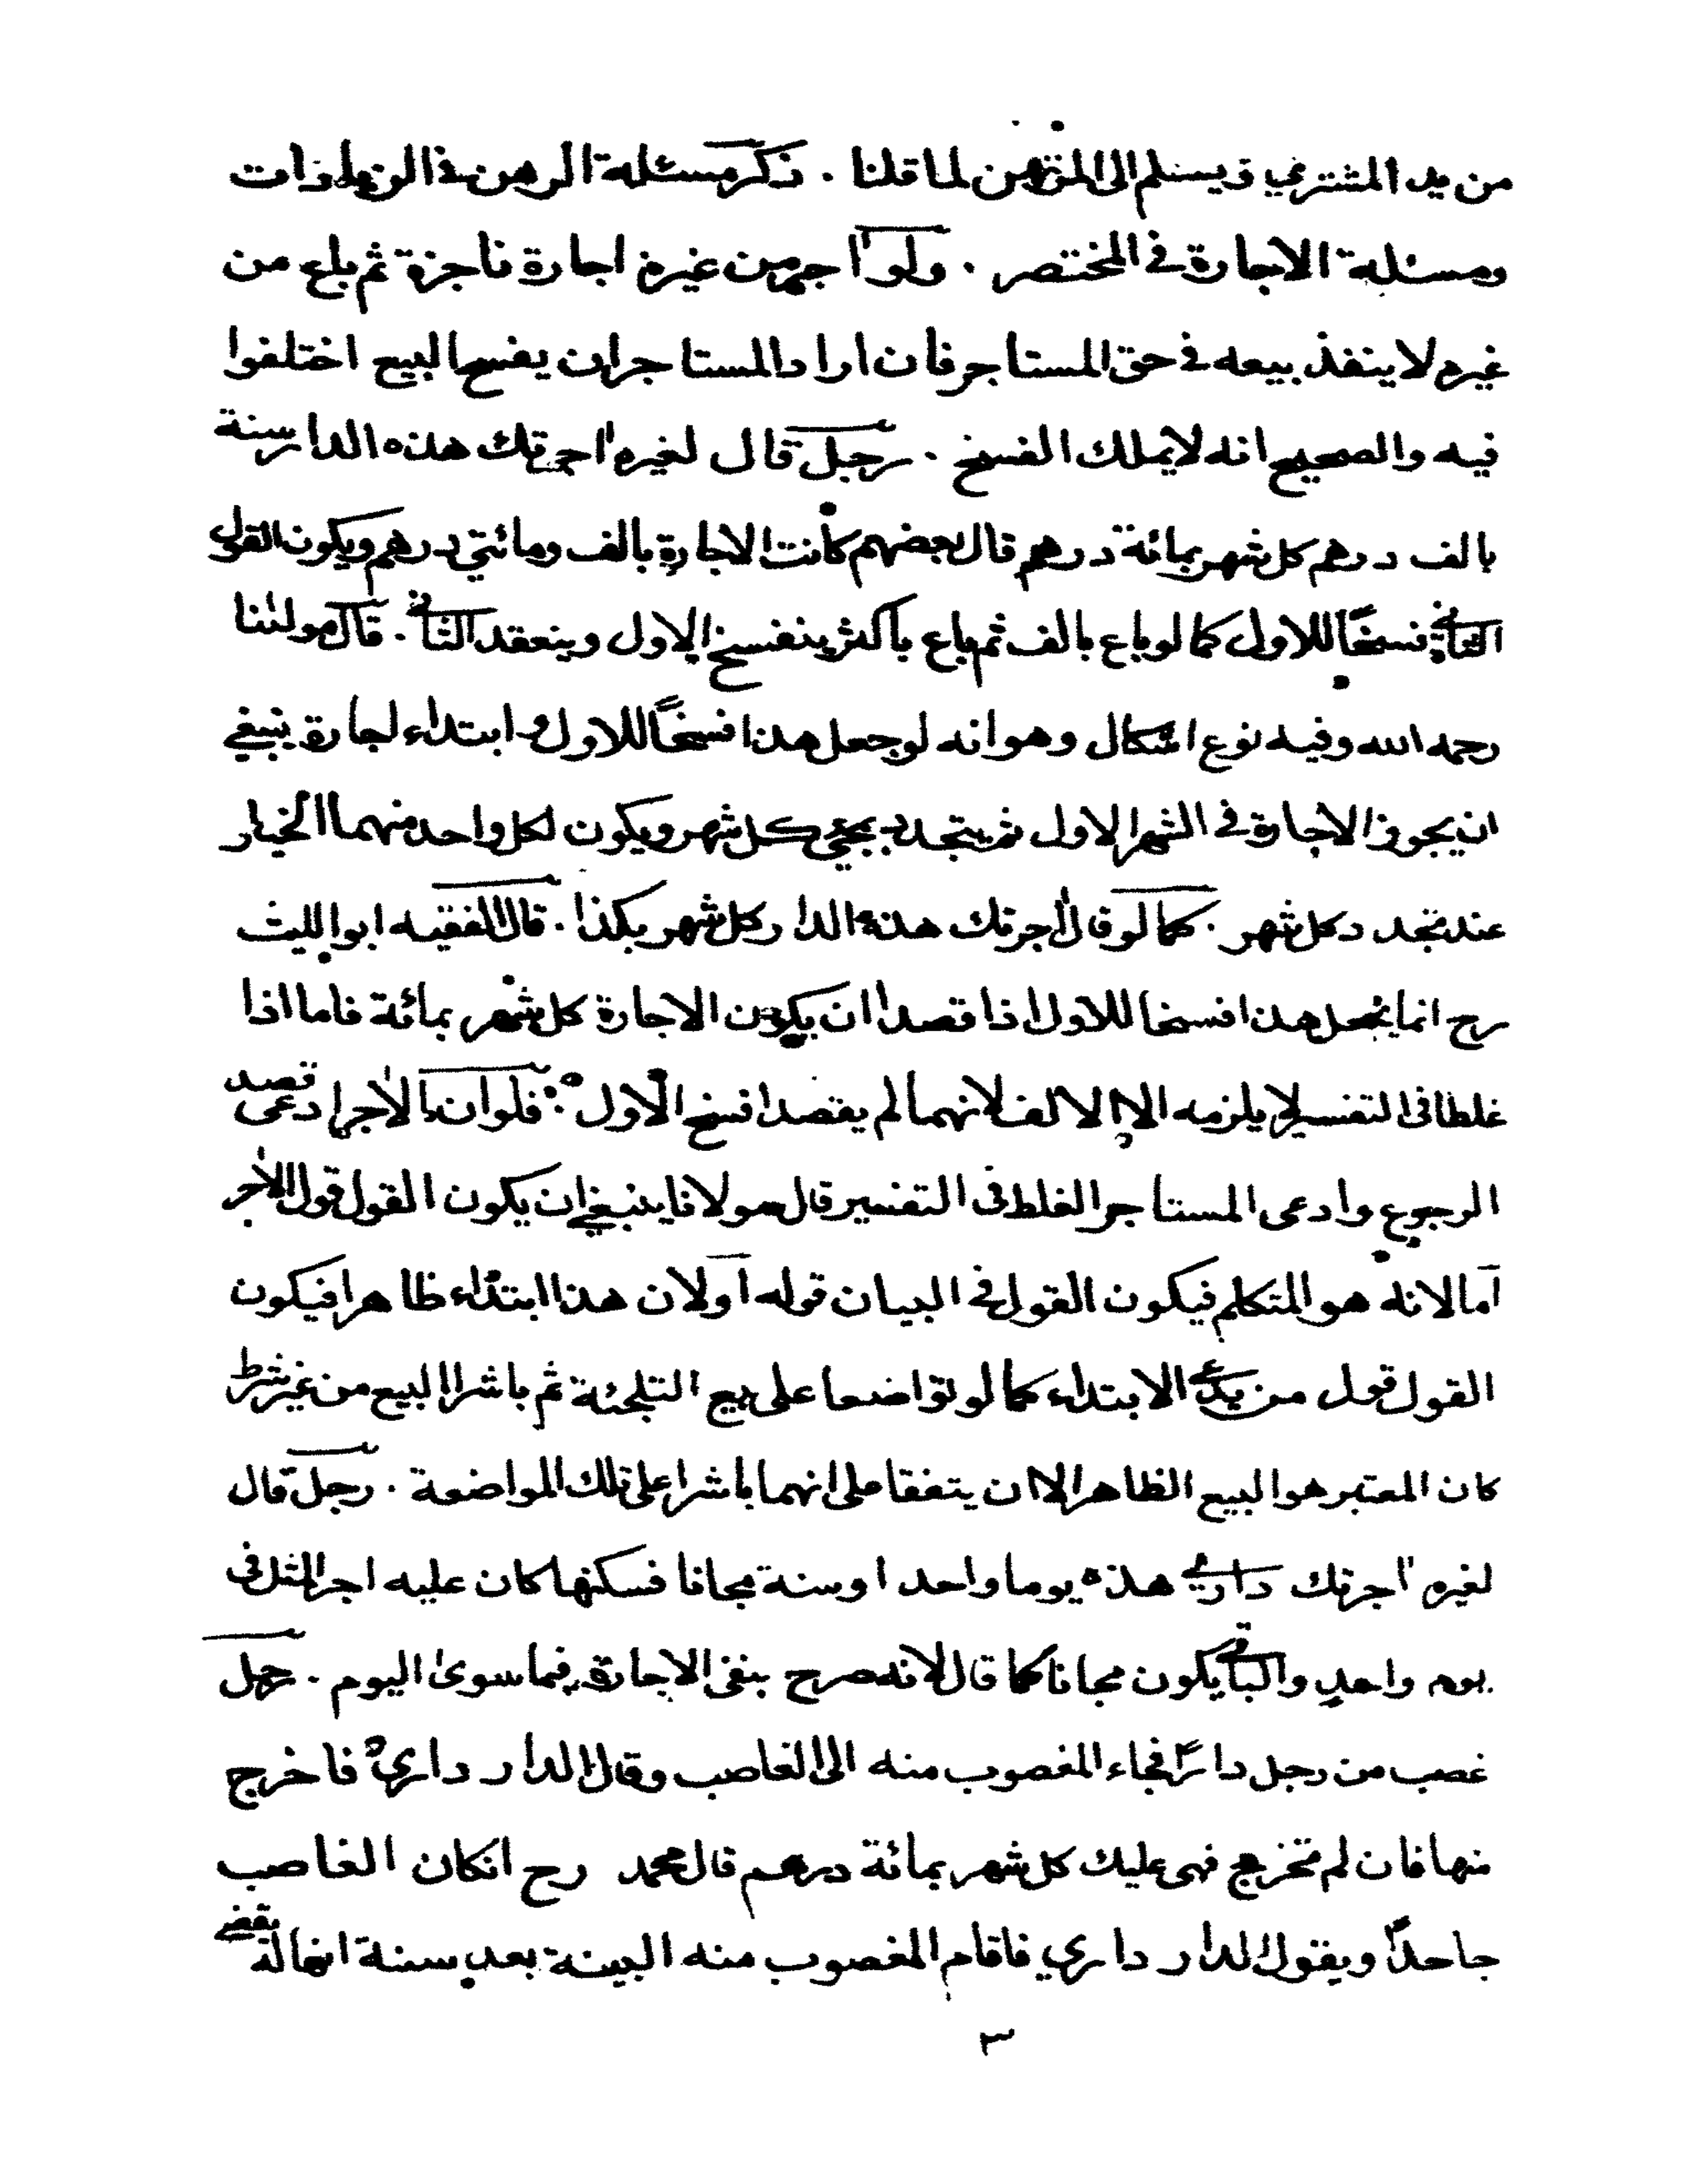 من يد المشتري ويسلم الى المرتهن لما قلنا . ذكر مسئلة الرهن في الزيادات
ومسئلة الاجارة في المختصر . ولو اجر من غيره اجارة ناجزة ثم باع من
غيره لا ينفذ بيعه في حق المستاجر فان اراد المستاجر ان يفسخ البيع اختلفوا
فيه والصحيح انه لا يملك الفسخ . رجل قال لغيره اجرتك هذه الدار سنة
بالف درهم كل شهر بمائة درهم قال بعضهم كانت الاجارة بالف ومائتي درهم ويكون القول
الثاني فسخًا للاول كما لو باع بالف ثم باع باكثر ينفسخ الاول وينعقد الثاني . قال مولٰنا
رحمه الله وفيه نوع اشكال وهو انه لو جعل هذا فسخًا للاول وابتداء اجارة ينبغي
ان يجوز الاجارة في الشهر الاول ثم يتجدد بمجئ كل شهر ويكون لكل واحد منهما الخيار
عند تجدد كل شهر . كما لو قال اجرتك هذه الدار كل شهر بكذا . قال الفقيه ابو الليث
رح انما يجعل هذا فسخا للاول اذا قصدا ان يكون الاجارة كل شهر بمائة فاما اذا
غلطا في التفسير لا يلزمه الا الالف لانهما لم يقصدا فسخ الاول . فلو ان الاجر ادعى قصد
الرجوع وادعى المستاجر الغلط في التفسير قال مولانا ينبغي ان يكون القول قول الاجر
اما لانه هو المتكلم فيكون القول في البيان قوله اولان هذا ابتداء ظاهرا فيكون
القول قول من يدعي الابتداء كما لو تواضعا على بيع التلجئة ثم باشرا البيع من غير شرط
كان المعتبر هو البيع الظاهر الا ان يتفقا على انهما باشرا على تلك المواضعة . رجل قال
لغيره اجرتك داري هذه يوما واحدا وسنة مجانا فسكنها كان عليه اجر المثل في
يوم واحد والباقي يكون مجانا كما قال لانه صرح بنفي الاجارة فيما سوى اليوم . رجل
غصب من رجل دارًا فجاء المغصوب منه الى الغاصب وقال الدار داري فاخرج
منها فان لم تخرج فهي عليك كل شهر بمائة درهم قال محمد رح انكان الغاصب
جاحدًا ويقول الدار داري فاقام المغصوب منه البينة بعد سنة انها له يقضي
٣